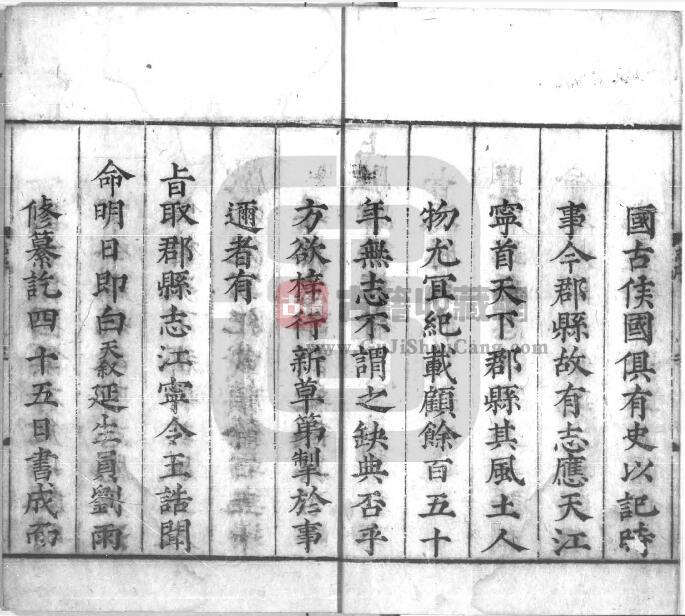 國古侯國俱有史以記時
事今郡縣故有志應天江
寧首天下郡縣其風土人
物尤宜紀載顧餘百五十
年無志不謂之缺典否乎
方欲梓行新草第掣於事
邇者有
旨取郡縣志江寧令王誥聞
命明日即白天敘延生員劉雨
修纂訖四十五日書成雨
古籍收藏
www.GuJiShouCang.com